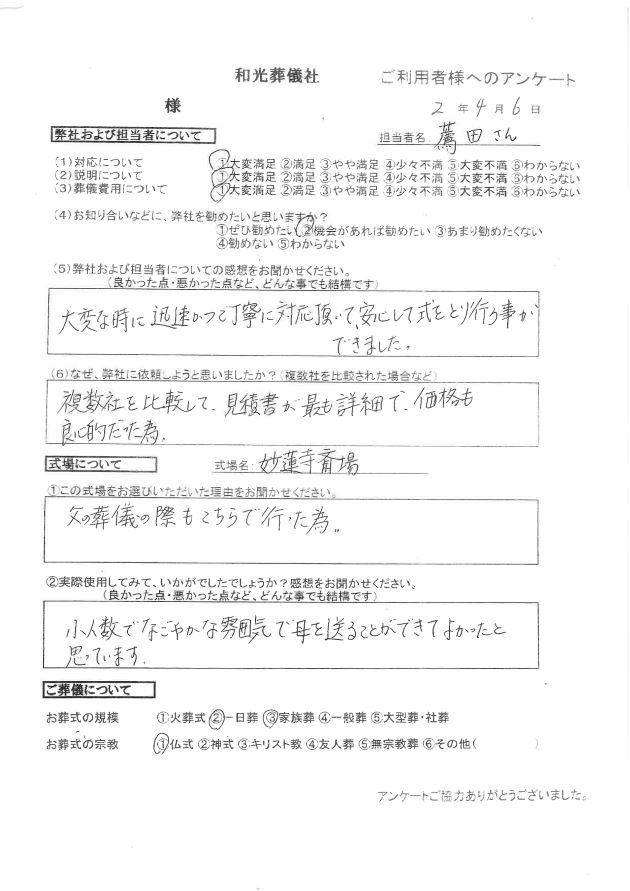 和光葬儀社 ご利用者様へのアンケート
様 2 年 4 月 6 日
弊社および担当者について 担当者名: 薦田さん
(1)対応について ①大変満足 ②満足 ③やや満足 ④少々不満 ⑤大変不満 ⑥わからない
(2)説明について ①大変満足 ②満足 ③やや満足 ④少々不満 ⑤大変不満 ⑥わからない
(3)葬儀費用について ①大変満足 ②満足 ③やや満足 ④少々不満 ⑤大変不満 ⑥わからない
(4)お知り合いなどに、弊社を勧めたいと思いますか?
①ぜひ勧めたい ②機会があれば勧めたい ③あまり勧めたくない
④勧めない ⑤わからない
(5)弊社および担当者についての感想をお聞かせください。
(良かった点・悪かった点など、どんな事でも結構です)
大変な時に迅速かつ丁寧に対応頂いて、安心して式をとり行う事が
できました。
(6)なぜ、弊社に依頼しようと思いましたか?(複数社を比較された場合など)
複数社を比較して、見積書が最も詳細で、価格も
良心的だった為。
式場について 式場名: 妙蓮寺斎場
①この式場をお選びいただいた理由をお聞かせください。
父の葬儀の際もこちらで行った為。
②実際使用してみて、いかがでしたでしょうか?感想をお聞かせください。
(良かった点・悪かった点など、どんな事でも結構です)
小人数でなごやかな雰囲気で母を送ることができてよかったと
思っています。
ご葬儀について
お葬式の規模 ①火葬式 ②一日葬 ③家族葬 ④一般葬 ⑤大型葬・社葬
お葬式の宗教 ①仏式 ②神式 ③キリスト教 ④友人葬 ⑤無宗教葬 ⑥その他( )
アンケートご協力ありがとうございました。